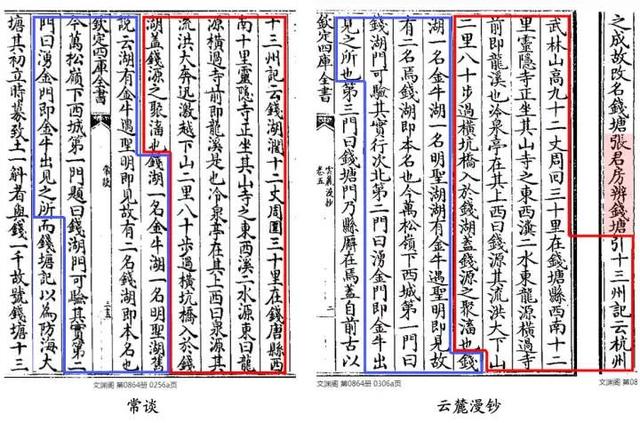 十三州記云錢湖濶十二丈周圍三十里在錢唐縣西
南十里靈隱寺正坐其山寺之東西溪二水源東曰龍
源橫過寺前即龍溪是也冷泉亭在其上西曰泉源其
流洪大奔迅激越下山二里八十步過橫坑橋入於錢
湖葢錢源之聚潴也錢湖一名金牛湖一名明聖湖舊
說云湖有金牛遇聖明即見故有二名錢湖即本名也
欽定四庫全書
常談
今萬松嶺下西城第一門題曰錢湖門可驗其實第二
門曰湧金門即金牛出見之所而錢塘記以為防海大
塘其初立時募致土一斛者與錢一千故號錢塘十三
文渊阁 第0864册 0256a页
常谈
之成故改名錢塘張君房辨錢塘引十三州記云杭州
武林山高九十二丈周回三十里在錢塘縣西南十二
里靈隱寺正坐其山寺之東西瀼二水東龍源橫過寺
前即龍溪也冷泉亭在其上西曰錢源其流洪大下山
二里八十步過橫坑橋入於錢湖葢錢源之聚潴也錢
湖一名金牛湖一名明聖湖湖有金牛遇聖明即見故
有二名焉錢湖即本名也今萬松嶺下西城第一門曰
錢湖門可驗其實行次北第二門曰湧金門即金牛出
見之所也第三門曰錢塘門乃縣廨在焉蓋自前古以
欽定四庫全書
雲麓漫抄
卷五
二
文渊阁 第0864册 0306a页
文渊阁 第08
云麓漫钞